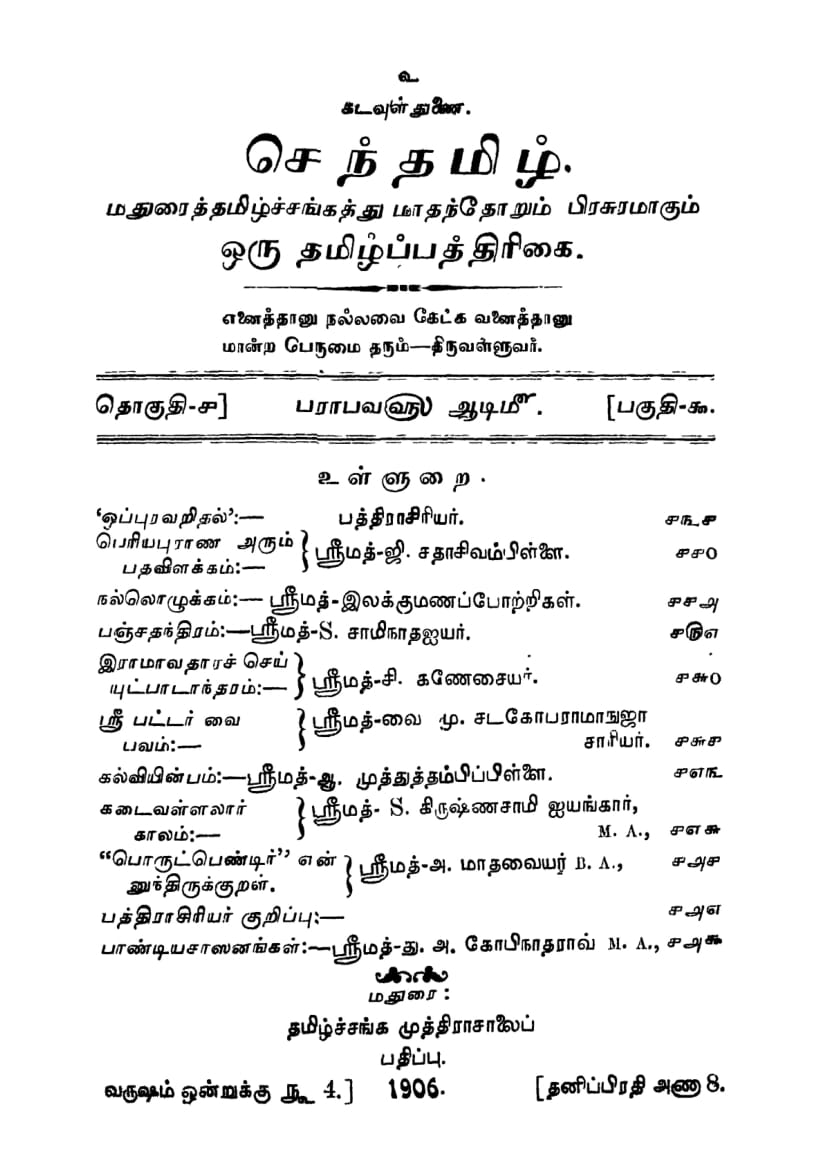 உ
கடவுள் துணை.
செந்தமிழ்.
மதுரைத்தமிழ்ச்சங்கத்து மாதந்தோறும் பிரசுரமாகும்
ஒரு தமிழ்ப்பத்திரிகை.
எனைத்தானு நல்லவை கேட்க வனைத்தானு
மான்ற பேருமை தரும்—திருவள்ளுவர்.
தொகுதி-௪] பராபவ௵ ஆடி௴. [பகுதி-௯.
உள்ளுறை.
‘ஒப்புரவறிதல்’:— பத்திராசிரியர். ௪௩௪
பெரியபுராண அரும்
பதவிளக்கம்:— } ஸ்ரீமத்-ஜி. சதாசிவம்பிள்ளை. ௪௪௦
நல்லொழுக்கம்:— ஸ்ரீமத்-இலக்குமணப்போற்றிகள். ௪௪௮
பஞ்சதந்திரம்:—ஸ்ரீமத்-S. சாமிநாதஐயர். ௪௫௭
இராமாவதாரச் செய்
யுட்பாடாந்தரம்:— } ஸ்ரீமத்-சி. கணேசையர். ௪௬௦
ஸ்ரீ பட்டர் வை
பவம்:— } ஸ்ரீமத்-வை மு. சடகோபராமாநுஜா
சாரியர். ௪௬௪
கல்வியின்பம்:—ஸ்ரீமத்-ஆ. முத்துத்தம்பிப்பிள்ளை. ௪௭௩
கடைவள்ளலார்
காலம்:— } ஸ்ரீமத்- S. கிருஷ்ணசாமி ஐயங்கார்,
M. A., ௪௭௬
“பொருட்பெண்டிர்” என்
னுந்திருக்குறள். } ஸ்ரீமத்-அ. மாதவையர் B. A., ௪௮௪
பத்திராசிரியர் குறிப்பு:— ௪௮௭
பாண்டியசாஸனங்கள்:—ஸ்ரீமத்-து. அ. கோபிநாதராவ் M. A., ௪௮௯
மதுரை:
தமிழ்ச்சங்க முத்திராசாலைப்
பதிப்பு.
வருஷம் ஒன்றுக்கு ரூ 4.] 1906. [தனிப்பிரதி அணா 8.